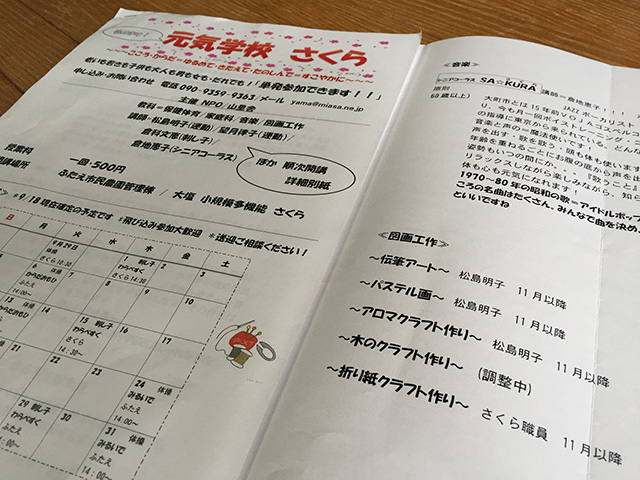 元気学校 さくら
～～こころ・からだ～ゆるめて・きたえて・たのしんで～すこやかに～～～
老いも若きも子供も大人も男も女も・だれでも！！「単発参加できます！！」
申し込み・お問い合わせ 電話 090-9359-9363 メール yama@miasa.ne.jp
主催 NPO 山里舎
教科－保健体育/家庭科/音楽/図画工作
講師－松島明子(運動)/望月津子(運動)/
倉科文恵(刺し子)/
倉地恵子(シニアコーラス)/
ほか 順次開講
詳細別紙
授業料 一回:500円
開講場所 ふたえ市民農園管理棟 / 大塩 小規模多機能 さくら
※9/18現在確定の予定です ※飛び込み参加大歓迎 ※送迎ご相談ください！
日 月 火 水 木 金 土
9月29日
体操
さくら
1 刺し子
わらべすく
さくら
14:30～
2
3
6 体操
ふたえ
7
8
9
10
13 体操
ふたえ
14:00～
14
15 刺し子
わらべすく
さくら
14:30～
16
17
21
22
23
24 体操
みるいで
ふたえ
14:00～
29 刺し子
わらべすく
ふたえ
14:00～
30
31 体操
みるいで
ふたえ
14:00～
≪音楽≫
シニアコーラス SA☆KURA 講師＝倉地恵子！！
原則
60歳以上)
大町市とは15年前
JAZZ ボーカリスト
り、今も月一回ボイストレ
の指導に東京から来られている。
音楽と声の一魔法使いです！
声を出す・歌を歌う・頭も体も使います
年齢を重ねるごとにお腹の底から声を出
姿勢もいつの間にか、『歌うこと』
リラックスしながら楽しみながら、知ら
体も心も元気になれます！
1970～80年の昭和の歌＝アイドルポップ
ころの名曲はたくさん、みんなで曲を決め、
といいですね
≪図画工作≫
～伝筆アート～ 松島明子 11月以降
～パステル画～ 松島明子 11月以降
～アロマクラフト作り～ 松島明子 11月以降
～木のクラフト作り～ (調整中)
～折り紙クラフト作り～ さくら職員 11月以降